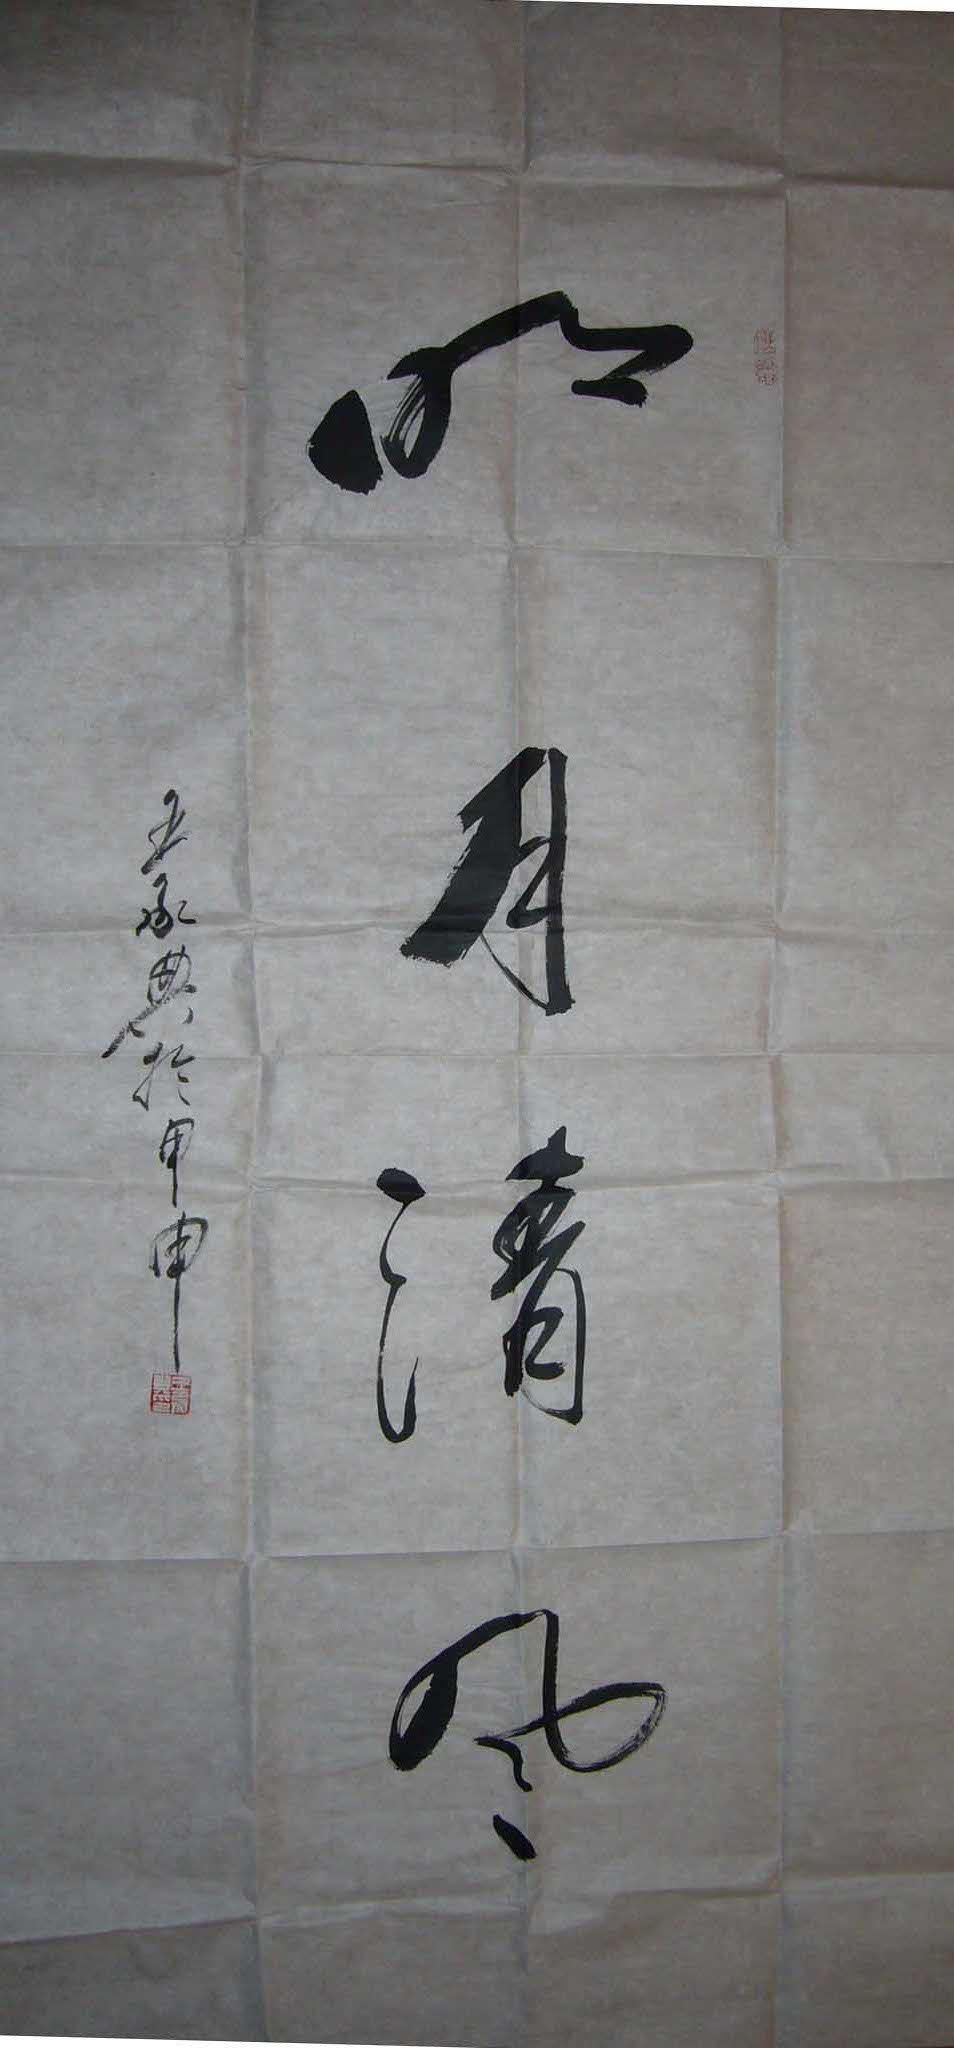 明月清风
王承典於甲申